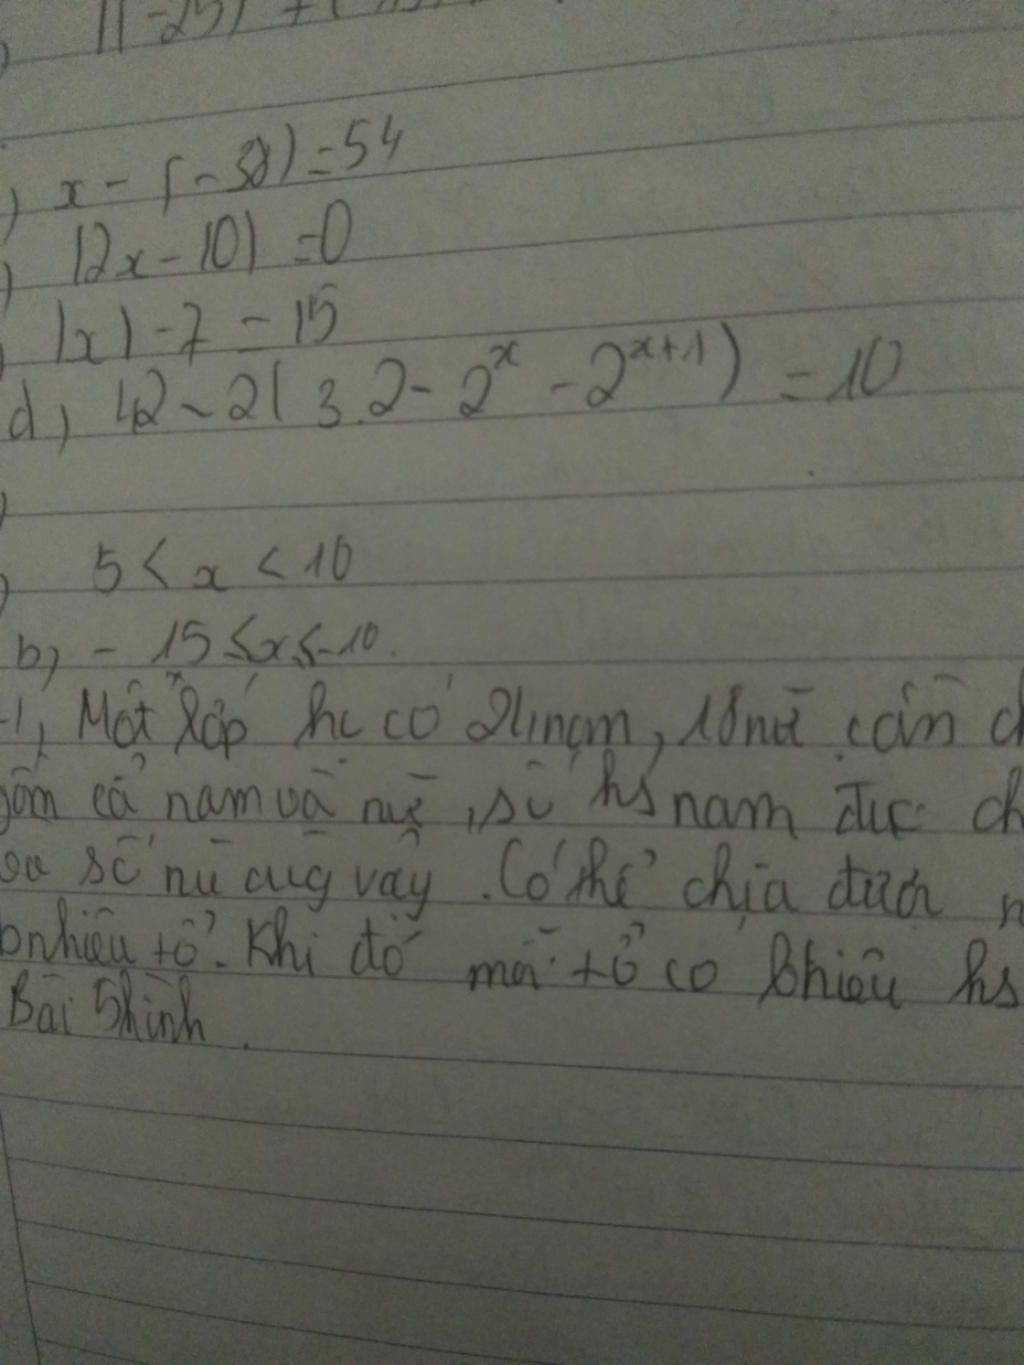 x - (-38) = 54
|2x - 10| = 0
|x| - 7 = 15
d) 42 - 2(3.2 - 2^x - 2^{x+1}) = 10
5 < x < 10
b) - 15 ≤ x ≤ -10.
1, Một lớp hc có nam, 18 nữ cần
gồm cả nam và nữ, số hs nam đực
số nữ cũg vậy. Có thể chia được
bnhiêu tổ. Khi đó mỗi tổ có bhiêu hs
Bài 5 hình.